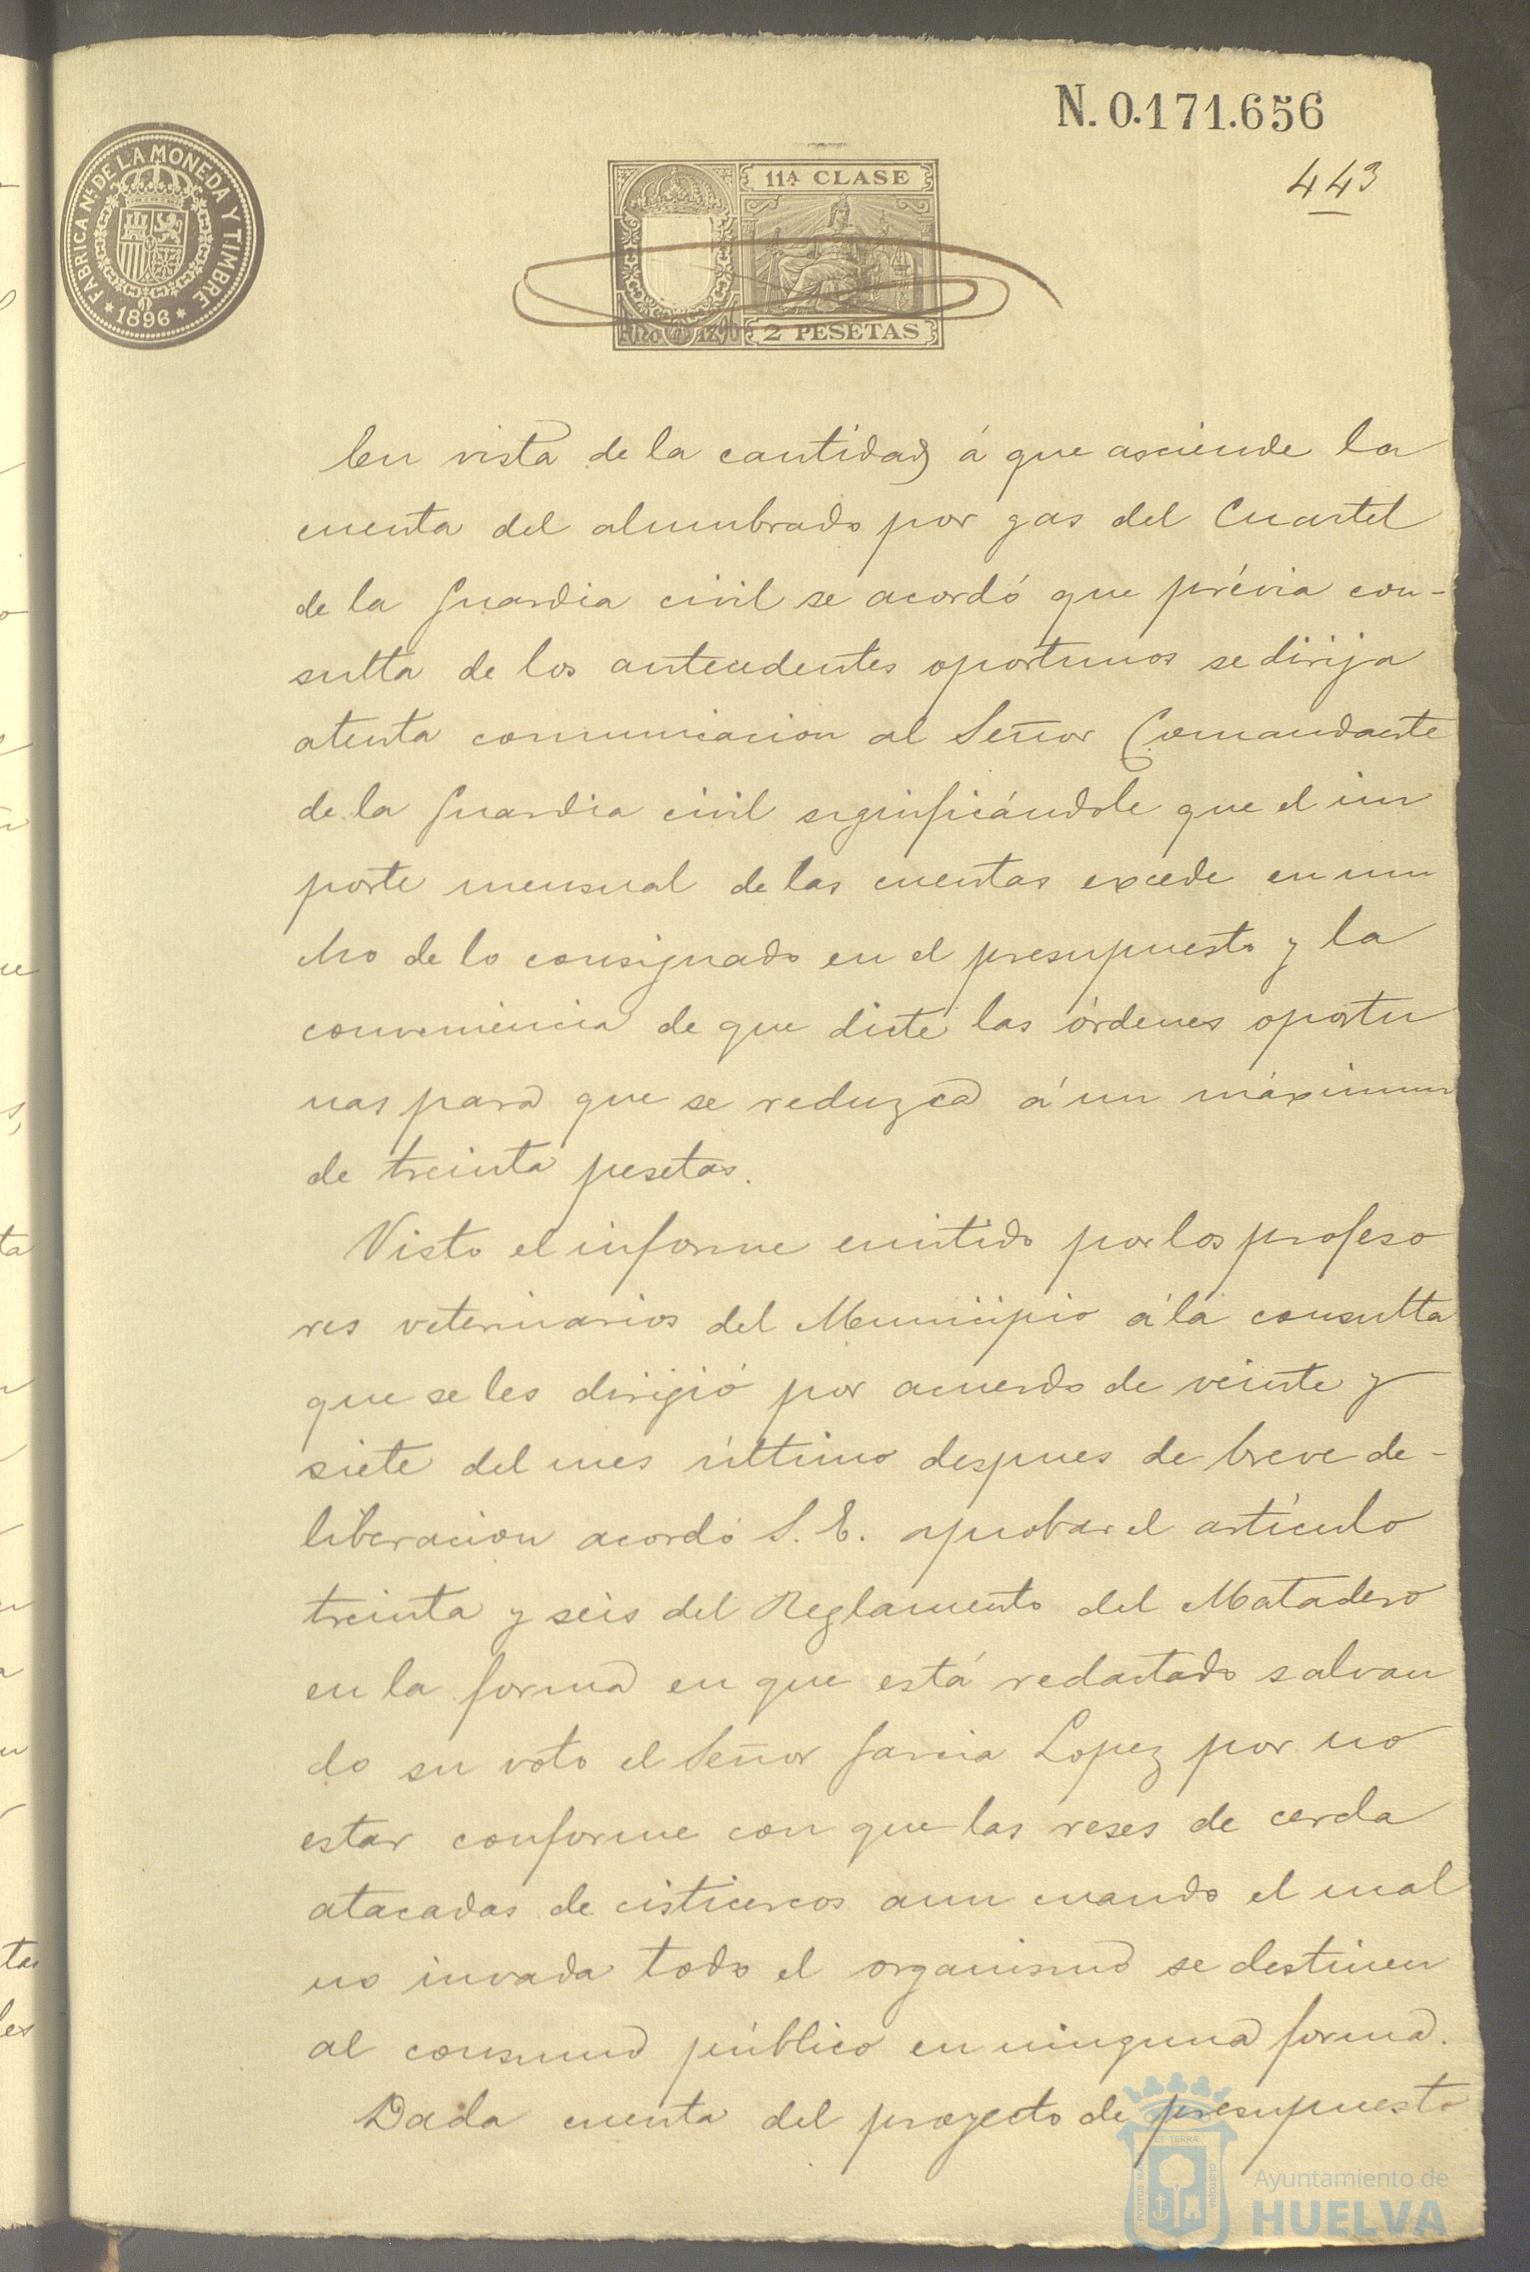 N. 0.171.656
443
FABRICA NL. DE LA MONEDA Y TIMBRE
* 1896 *
11ª CLASE
2 PESETAS
En vista de la cantidad á que asciende la
cuenta del alumbrado por gas del Cuartel
de la Guardia civil se acordó que prévia con-
sulta de los antecedentes oportunos se dirija
atenta comunicacion al Señor Comandante
de la Guardia civil significándole que el im
porte mensual de las cuentas excede en mu
cho de lo consignado en el presupuesto y la
conveniencia de que dicte las órdenes oportu
nas para que se reduzca á un máximum
de treinta pesetas.
Visto el informe emitido por los profeso
res veterinarios del Municipio á la consulta
que se les dirigió por acuerdo de veinte y
siete del mes último despues de breve de-
liberacion acordó S. E. aprobar el artículo
treinta y seis del Reglamento del Matadero
en la forma en que está redactado salvan
do su voto el Señor Garcia Lopez por no
estar conforme con que las reses de cerda
atacadas de cisticercos aun cuando el mal
no invada todo el organismo se destinen
al consumo público en ninguna forma.
Dada cuenta del proyecto de presupuesto
Ayuntamiento de
HUELVA